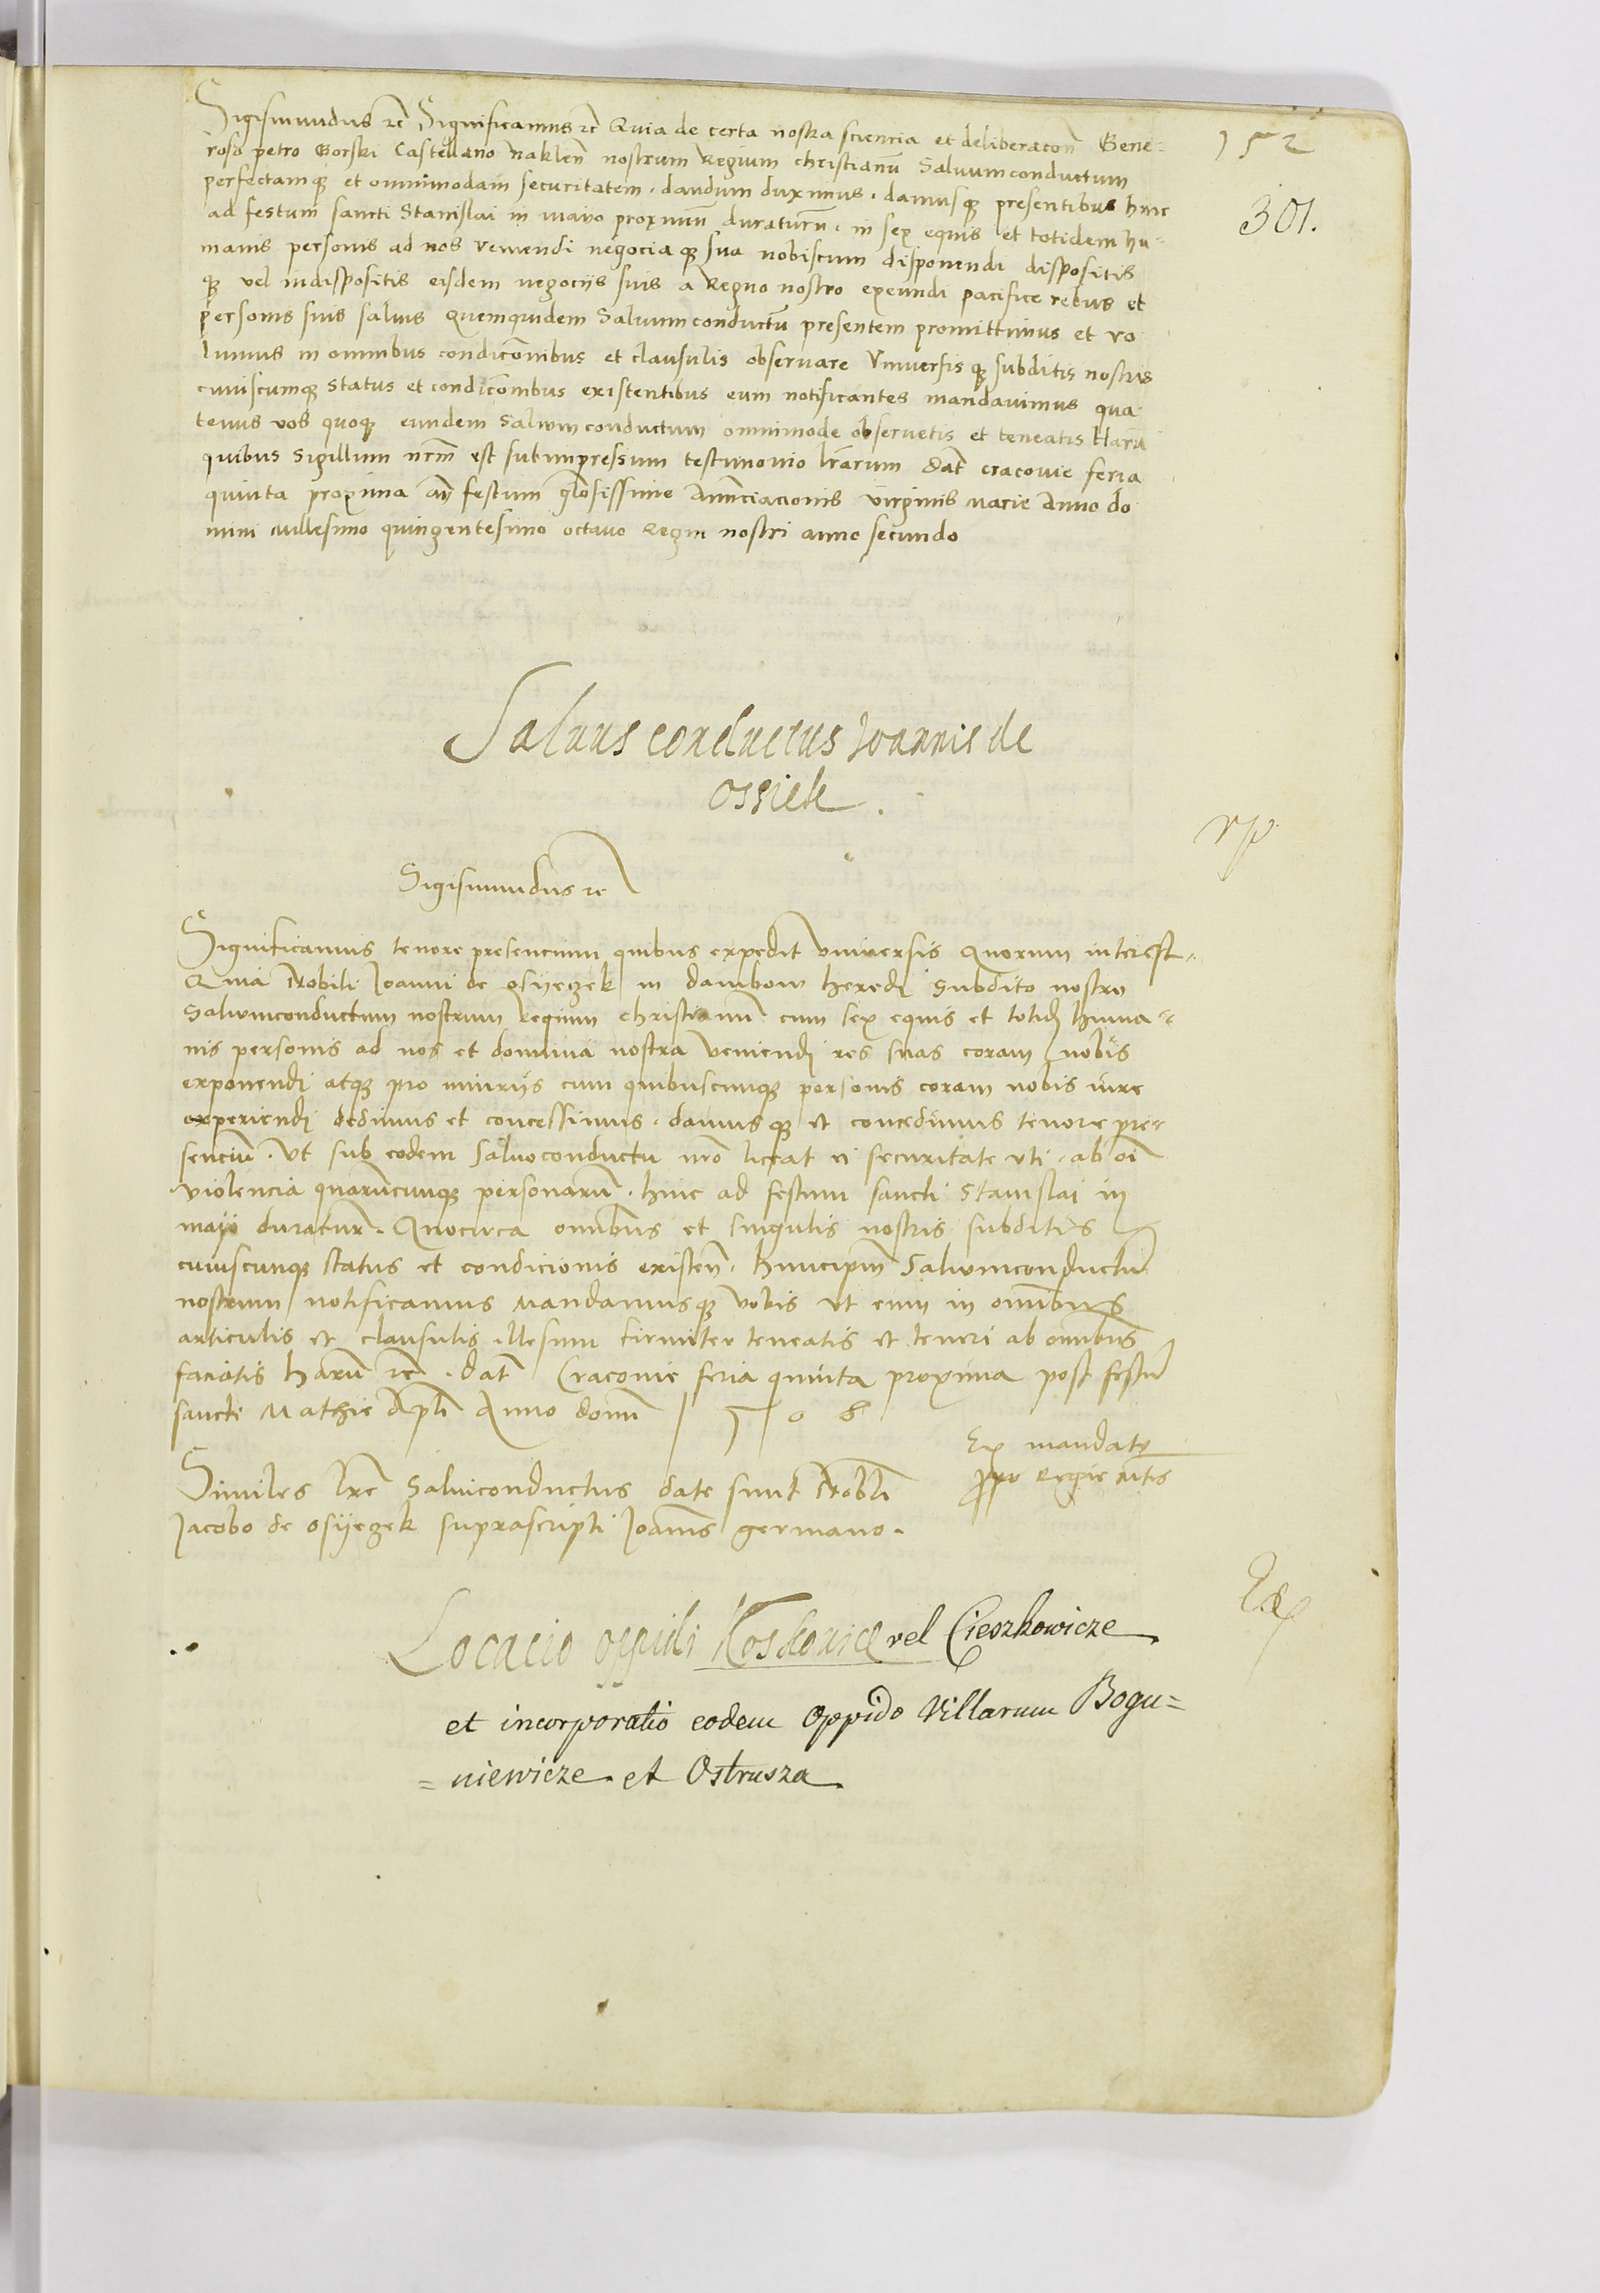 Sigismundus etc Significamus etc Quia de certa nostra sciencia et deliberacon̄ Gene=
roso petro Gorski Castellano Naklen̄ nostrum Regium christianū Saluumconductum
perfectamq; et omnimodam securitatem. dandum duximus. damusq; presentibus hinc
ad festum sancti Stanislai in mayo proximum duraturū. in sex equis et totidem hu=
manis personis ad nos veniendi negociaq; sua nobiscum disponendi dispositis
q; vel indispositis eisdem negocijs suis a Regno nostro exeundi pacifice rebus et
personis suis saluis Quemquidem Saluumconductū presentem promittimus et vo
lumus in omnibus condicōnibus et clausulis obseruare Vniuersisq; subditis nostris
cuiuscumq; status et condicōnibus existentibus eum notificantes mandauimus qua
tenus vos quoq; eundem Saluumconductum omnimode obseruetis et teneatis Harū
quibus Sigillum nr̄m est subimpressum testimonio lr̄arum Dat̄ Cracouie feria
quinta proxima an̄ festum gl̄osissime Annūciacionis virginis Marie Anno do
mini Millesimo quingentesimo octauo Regni nostri anno secundo
152
301.
Saluus conductus Joannis de
Ossiek.
rp
Sigismundus etc
Significamus tenore presencium quibus expedit vniuersis Quorum interest.
Quia Nobili Joanni de Osyeczek in dambow heredi subdito nostro
Saluumconductum nostrum regium christianū cum sex equis et totid̄ huma=
nis personis ad nos et dominia nostra veniendi res suas coram nobis
exponendi atq; pro iniurijs cum quibuscunq; personis coram nobis iure
experiendi dedimus et concessimus. damusq; et concedimus tenore pre=
senciū. Vt sub eodem saluoconductu nr̄o liceat ei securitate vti. ab oī
violencia quarūcunq; personarū. hinc ad festum sancti Stanislai in
mayo duratur̄. Quocirca omnibus et singulis nostris subditis
cuiuscunq; status et condicionis existen̄. hmōi Saluumconductū
nostrum notificamus Mandamusq; vobis vt eum in omnibus
articulis et clausulis illesum firmiter teneatis et teneri ab omnibus
faciatis harū etc. dat̄ Cracouie feria quinta proxima post festū
sancti Mathie Ap̄li Anno domī 1508
Ex mandato
ppō Regie Mt̄is
Similes lr̄e Saluiconductus date sunt Nobili
Jacobo de Osyeczek suprascripti Joannis germano.
Ex
Locacio oppidi Koskowice vel Cieszkowicze
et incorporatio eodem Oppido Villarum Bogu=
=niewicze et Ostrusza